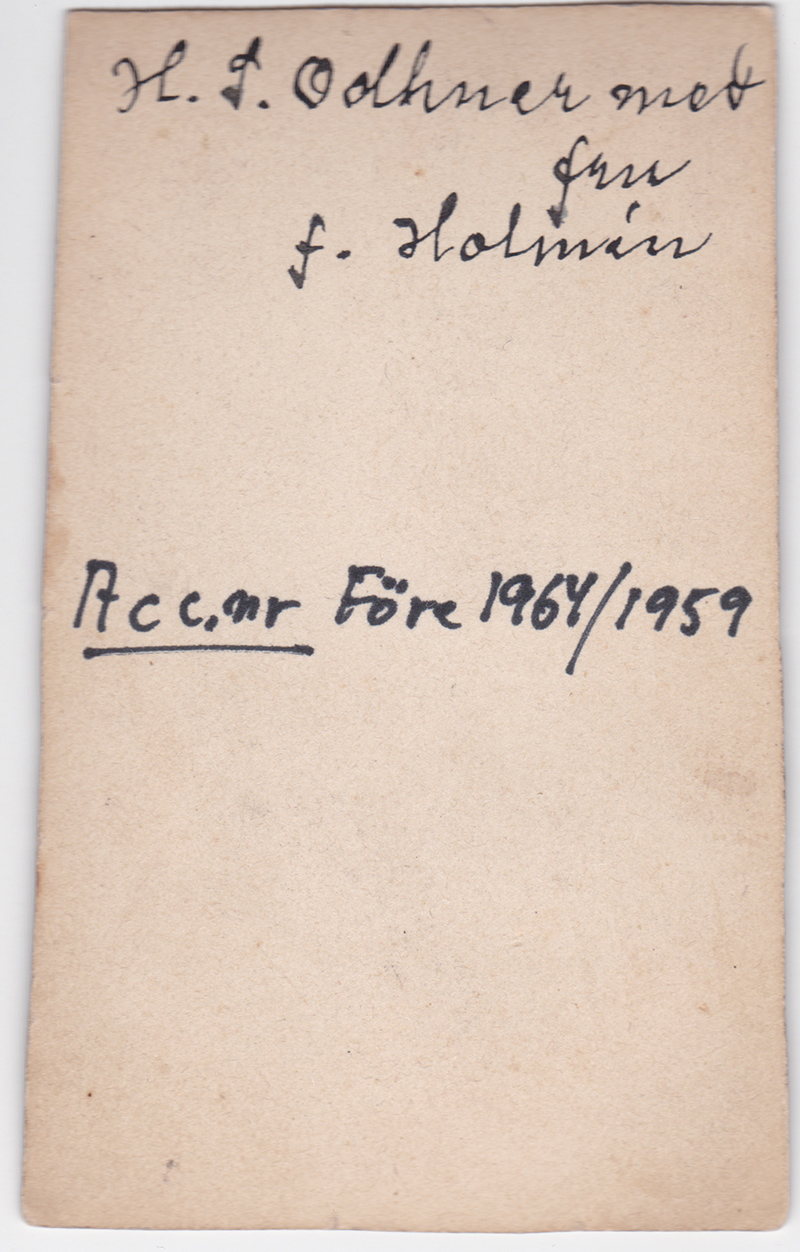 H. S. Odhner med
fru
f. Holmén
Acc.nr Före 1964/1959